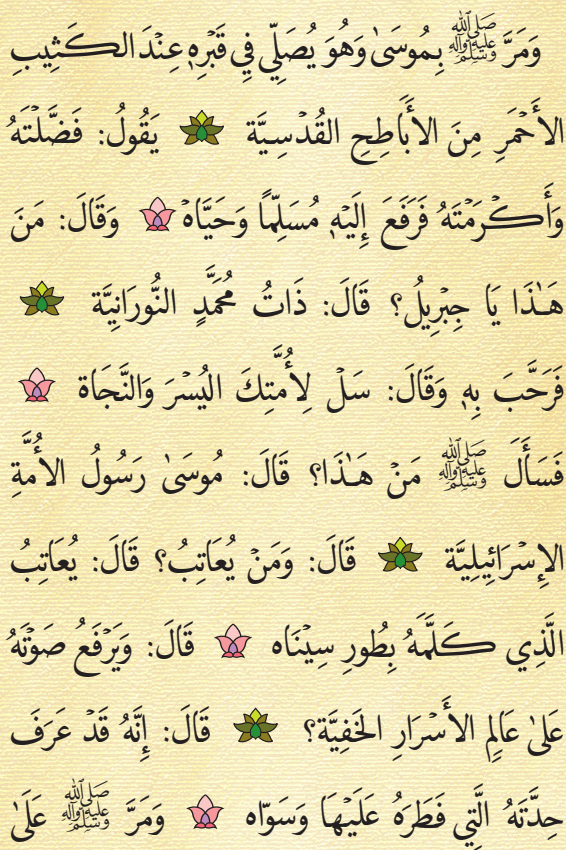 وَمَرَّ ﷺ بِمُوسَىٰ وَهُوَ يُصَلِّي فِي قَبْرِهِ عِنْدَ الكَثِيبِ
الأَحْمَرِ مِنَ الأَبَاطِحِ القُدْسِيَّة يَقُولُ: فَضَّلْتَهُ
وَأَكْرَمْتَهُ فَرَفَعَ إِلَيْهِ مُسَلِّمًا وَحَيَّاهْ وَقَالَ: مَنَ
هَـٰذَا يَا جِبْرِيلُ؟ قَالَ: ذَاتُ مُحَمَّدٍ النُّورَانِيَّة
فَرَحَّبَ بِهِ وَقَالَ: سَلْ لِأُمَّتِكَ اليُسْرَ وَالنَّجَاة
فَسَأَلَ ﷺ مَنْ هَـٰذَا؟ قَالَ: مُوسَىٰ رَسُولُ الأُمَّةِ
الإِسْرَائِيلِيَّة قَالَ: وَمَنْ يُعَاتِبُ؟ قَالَ: يُعَاتِبُ
الَّذِي كَلَّمَهُ بِطُورِ سِيْنَاه قَالَ: وَيَرْفَعُ صَوْتَهُ
عَلىٰ عَالِمِ الأَسْرَارِ الخَفِيَّة؟ قَالَ: إِنَّهُ قَدْ عَرَفَ
حِدَّتَهُ الَّتِي فَطَرَهُ عَلَيْهَا وَسَوّاه وَمَرَّ ﷺ عَلَىٰ